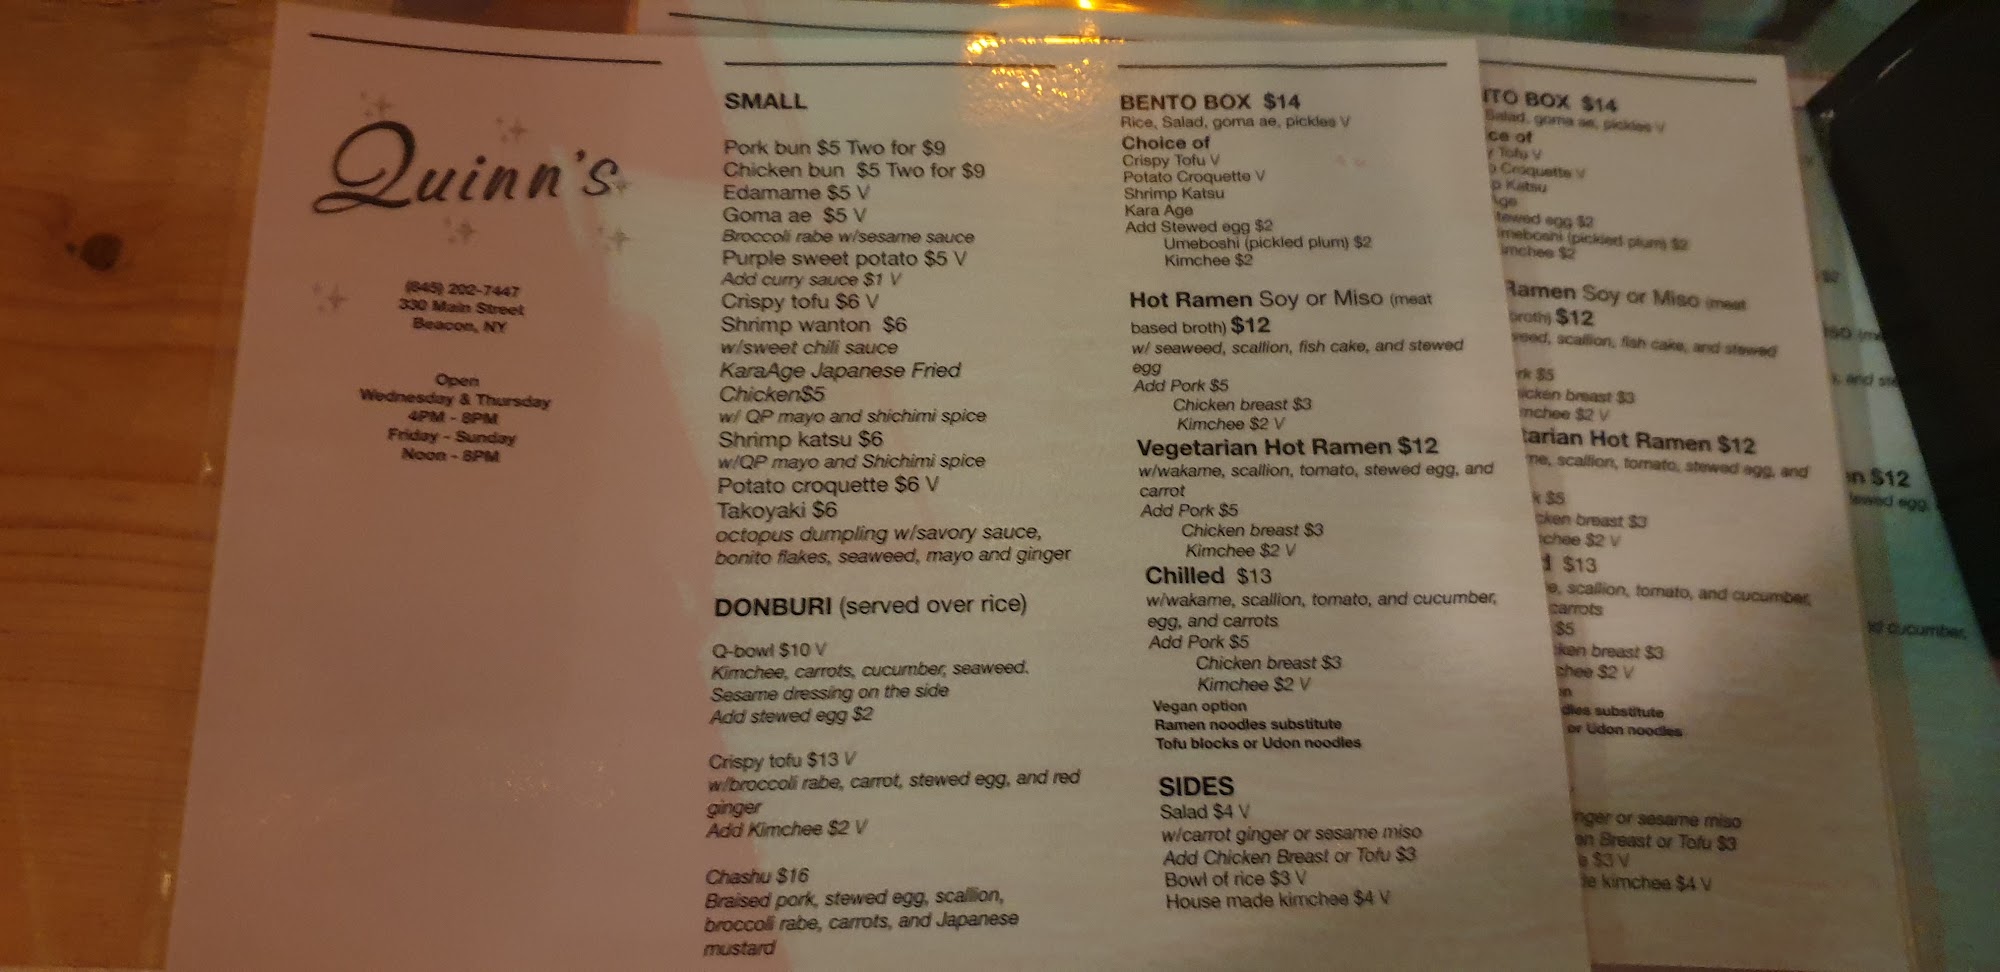 Quinn's
(845) 202-7447
330 Main Street
Beacon, NY
Open
Wednesday & Thursday
4PM - 8PM
Friday - Sunday
Noon - 8PM
SMALL
Pork bun $5 Two for $9
Chicken bun $5 Two for $9
Edamame $5 V
Goma ae $5 V
Broccoli rabe w/sesame sauce
Purple sweet potato $5 V
Add curry sauce $1 V
Crispy tofu $6 V
Shrimp wanton $6
w/sweet chili sauce
KaraAge Japanese Fried
Chicken$5
w/ QP mayo and shichimi spice
Shrimp katsu $6
w/QP mayo and Shichimi spice
Potato croquette $6 V
Takoyaki $6
octopus dumpling w/savory sauce,
bonito flakes, seaweed, mayo and ginger
DONBURI (served over rice)
Q-bowl $10 V
Kimchee, carrots, cucumber, seaweed.
Sesame dressing on the side
Add stewed egg $2
Crispy tofu $13 V
w/broccoli rabe, carrot, stewed egg, and red
ginger
Add Kimchee $2 V
Chashu $16
Braised pork, stewed egg, scallion,
broccoli rabe, carrots, and Japanese
mustard
BENTO BOX $14
Rice, Salad, goma ae, pickles V
Choice of
Crispy Tofu V
Potato Croquette V
Shrimp Katsu
Kara Age
Add Stewed egg $2
Umeboshi (pickled plum) $2
Kimchee $2
Hot Ramen Soy or Miso (meat
based broth) $12
w/ seaweed, scallion, fish cake, and stewed
egg
Add Pork $5
Chicken breast $3
Kimchee $2 V
Vegetarian Hot Ramen $12
w/wakame, scallion, tomato, stewed egg, and
carrot
Add Pork $5
Chicken breast $3
Kimchee $2 V
Chilled $13
w/wakame, scallion, tomato, and cucumber,
egg, and carrots
Add Pork $5
Chicken breast $3
Kimchee $2 V
Vegan option
Ramen noodles substitute
Tofu blocks or Udon noodles
SIDES
Salad $4 V
w/carrot ginger or sesame miso
Add Chicken Breast or Tofu $3
Bowl of rice $3 V
House made kimchee $4 V
ITO BOX $14
Salad, goma ae, pickles V
ce of
Tofu V
Croquette V
p Katsu
Age
tewed egg $2
meboshi (pickled plum) $2
imchee $2
Ramen Soy or Miso (meat
broth) $12
weed, scallion, fish cake, and stewed
rk $5
icken breast $3
mchee $2 V
tarian Hot Ramen $12
me, scallion, tomato, stewed egg, and
k $5
cken breast $3
chee $2 V
d $13
e, scallion, tomato, and cucumber,
carrots
$5
ken breast $3
chee $2 V
n
dles substitute
or Udon noodles
nger or sesame miso
en Breast or Tofu $3
e $3 V
de kimchee $4 V
$2
n $12
tewed egg,
cucumber,